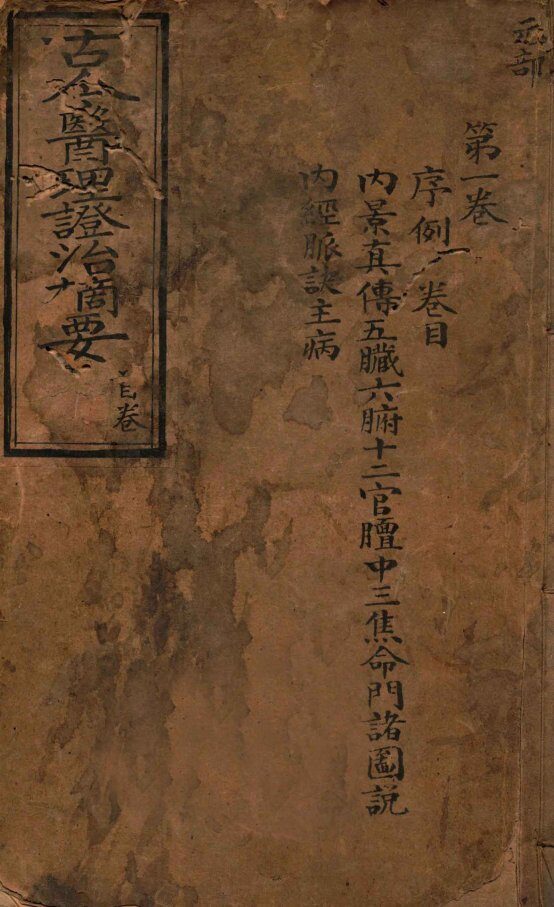 元部
第一卷
序例 卷目
內景真傳五臟六腑十二官膻中三焦命門諸圖說
內經脈訣主病
古今醫理證治摘要
卷